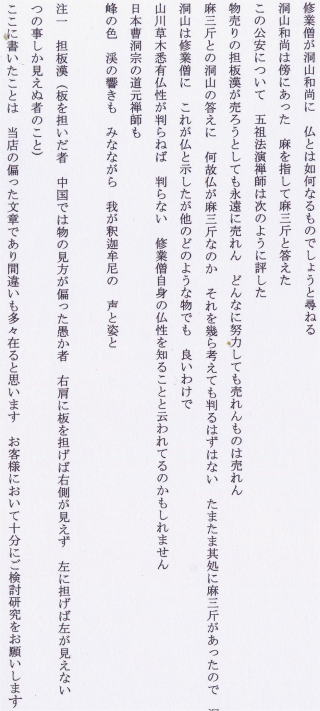 修業僧が洞山和尚に　仏とは如何なるものでしょうと尋ねる
洞山和尚は傍にあった　麻を指して麻三斤と答えた
この公安について　五祖法演禅師は次のように評した
物売りの担板漢が売ろうとしても永遠に売れん　どんなに努力しても売れんものは売れん
麻三斤との洞山の答えに　何故仏が麻三斤なのか　それを幾ら考えても判るはずはない　たまたま其処に麻三斤があったので
洞山は修業僧に　これが仏と示したが他のどのような物でも　良いわけで
山川草木悉有仏性が判らねば　判らない　修業僧自身の仏性を知ることと云われてるのかもしれません
日本曹洞宗の道元禅師も
峰の色　渓の響きも　みなながら　我が釈迦牟尼の　声と姿と
注一　担板漢（板を担いだ者　中国では物の見方が偏った愚か者　右肩に板を担げば右側が見えず　左に担げば左が見えない
つの事しか見えぬ者のこと）
ここに書いたことは　当店の偏った文章であり間違いも多々在ると思います　お客様において十分にご検討研究をお願いします